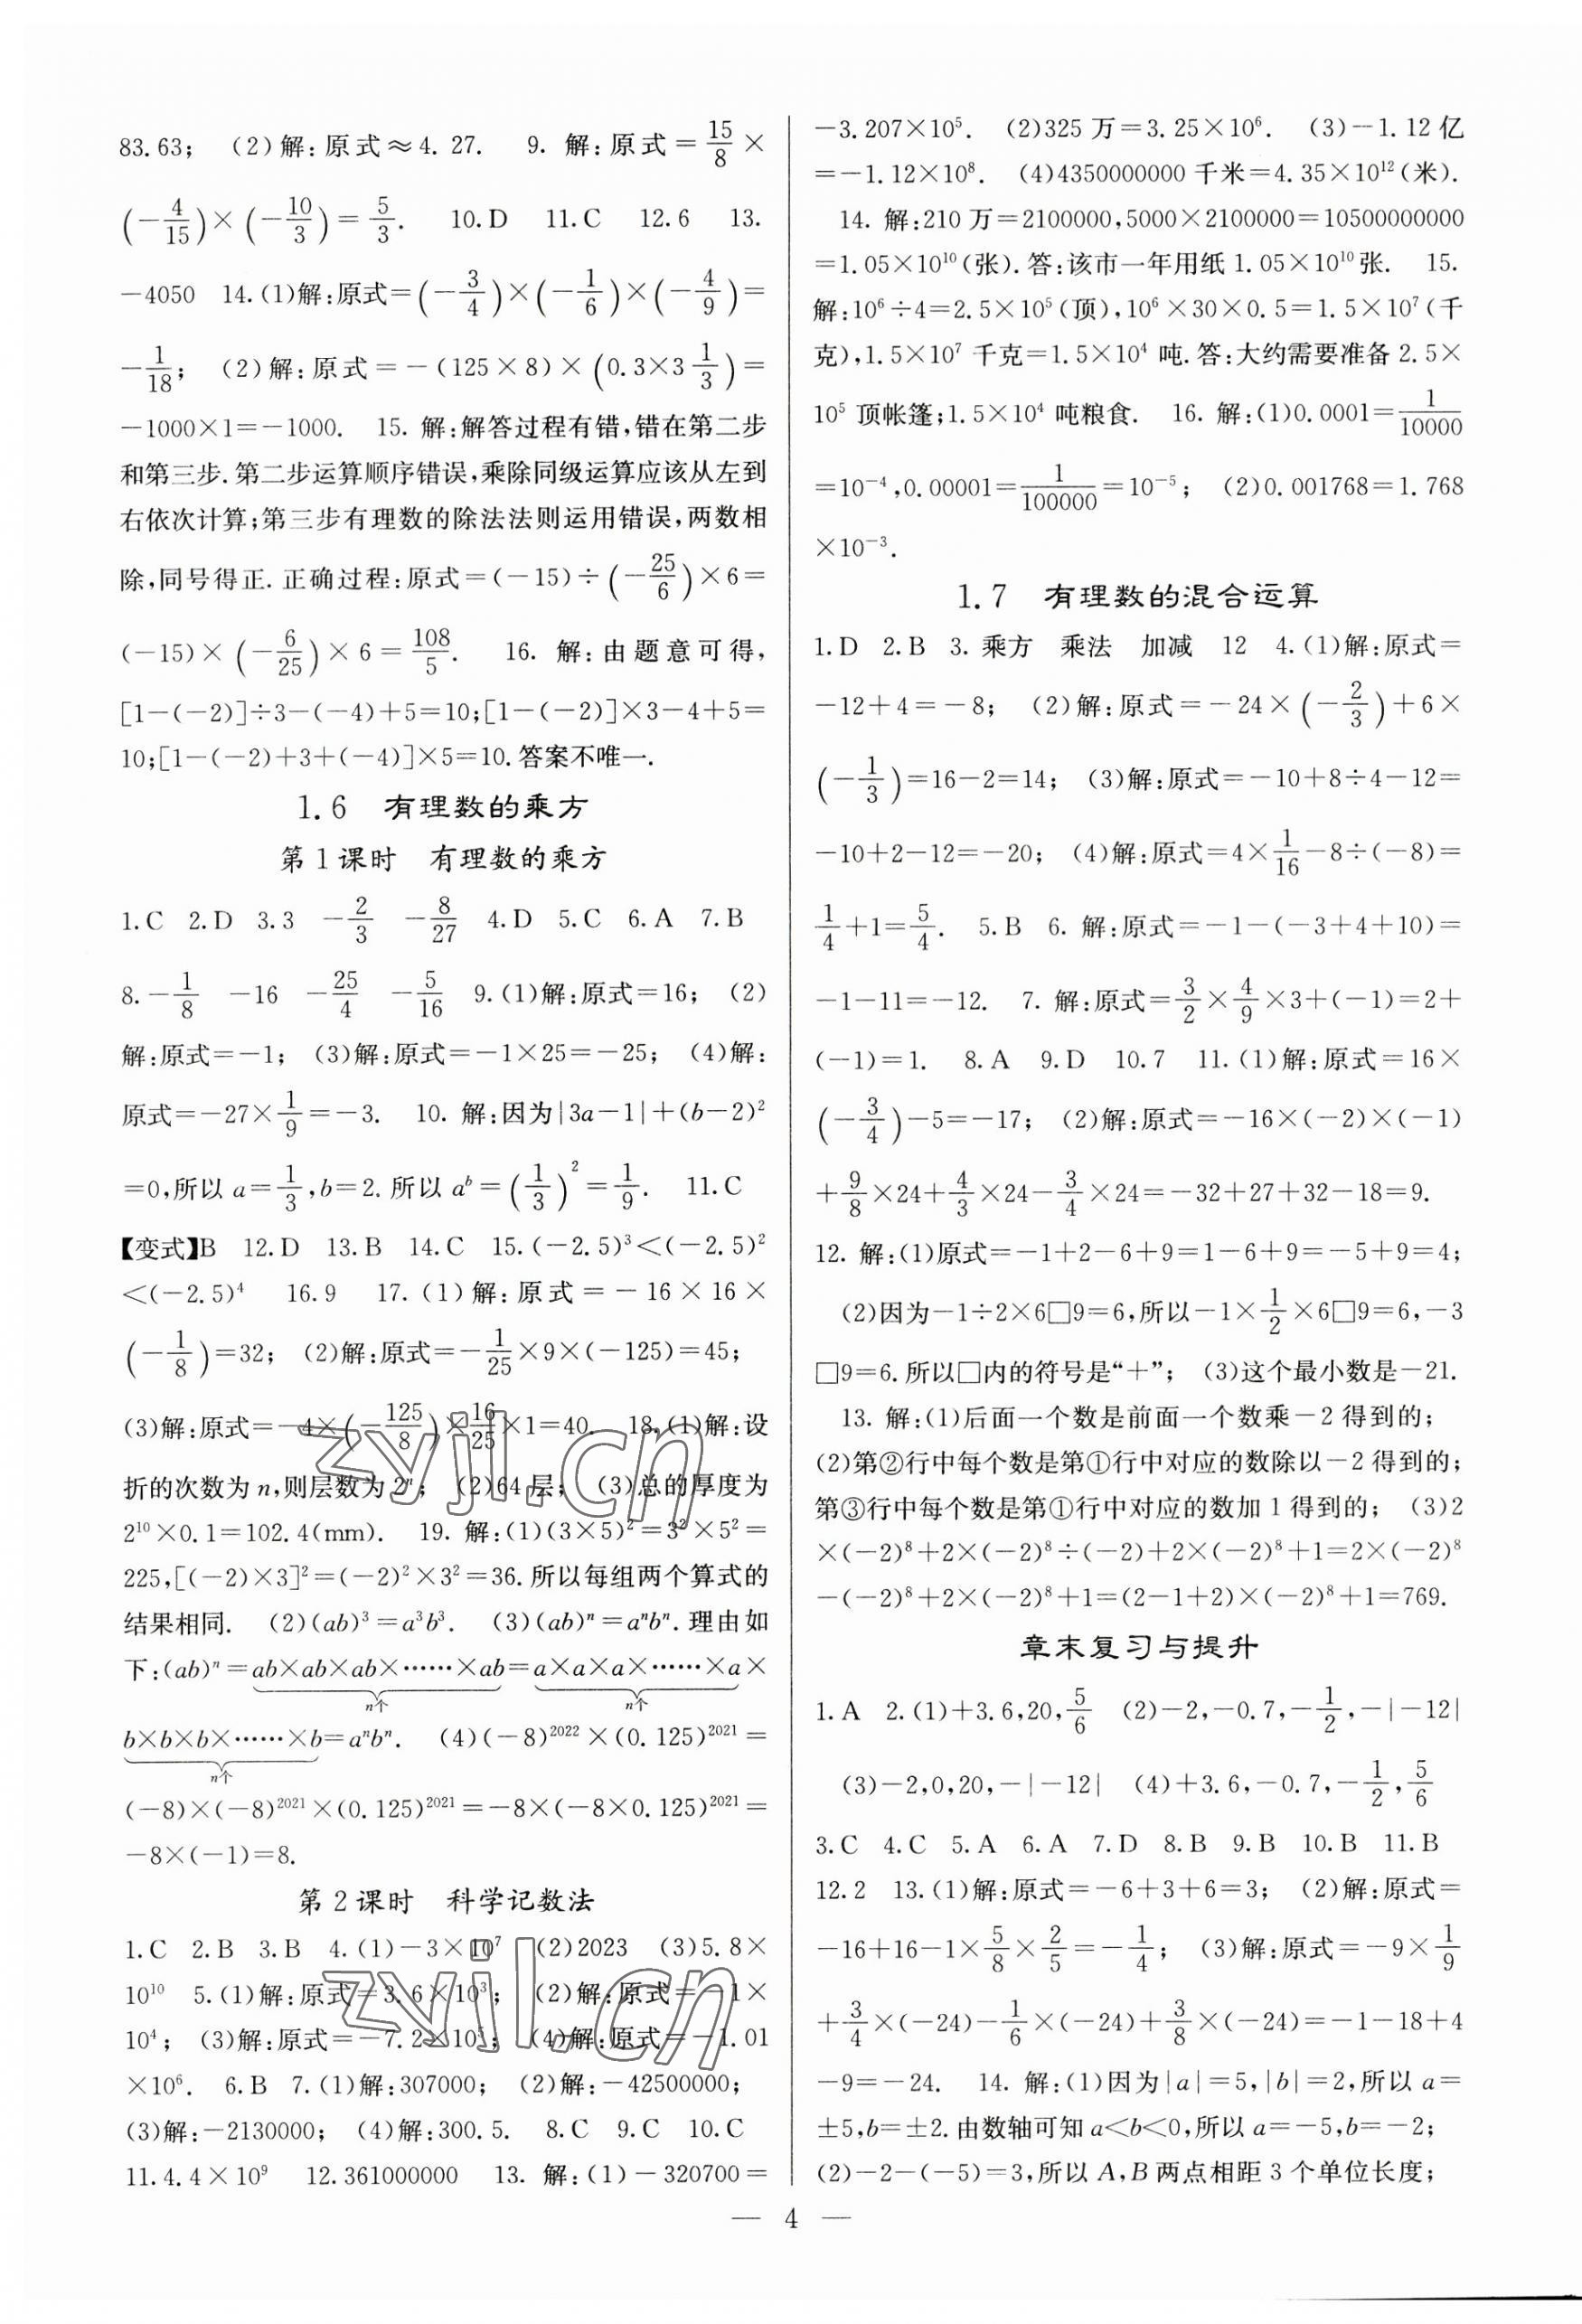 83.63; (2)解:原式≈4.27. 9. 解:原式=15/8×
(-4/15)×(-10/3)=5/3. 10.D 11.C 12.6 13.
-4050 14.(1)解:原式=(-3/4)×(-1/6)×(-4/9)=
-1/18; (2)解:原式=-(125×8)×(0.3×3 1/3)=
-1000×1=-1000. 15. 解:解答过程有错,错在第二步
和第三步.第二步运算顺序错误,乘除同级运算应该从左到
右依次计算;第三步有理数的除法法则运用错误,两数相
除,同号得正.正确过程:原式=(-15)÷(-25/6)×6=
(-15)×(-6/25)×6=108/5. 16. 解:由题意可得,
[1-(-2)]÷3-(-4)+5=10;[1-(-2)]×3-4+5=
10;[1-(-2)+3+(-4)]×5=10.答案不唯一.
1.6 有理数的乘方
第1课时 有理数的乘方
1.C 2.D 3.3 -2/3 -8/27 4.D 5.C 6.A 7.B
8.-1/8 -16 -25/4 -5/16 9.(1)解:原式=16; (2)
解:原式=-1; (3)解:原式=-1×25=-25; (4)解:
原式=-27×1/9=-3. 10. 解:因为|3a-1|+(b-2)²
=0,所以a=1/3,b=2.所以aᵇ=(1/3)²=1/9. 11.C
【变式】B 12.D 13.B 14.C 15.(-2.5)³<(-2.5)²
<(-2.5)⁴ 16.9 17.(1)解:原式=-16×16×
(-1/8)=32; (2)解:原式=-1/25×9×(-125)=45;
(3)解:原式=-4×(-125/8)×16/25×1=40. 18.(1)解:设
折的次数为n,则层数为2ⁿ; (2)64层; (3)总的厚度为
2¹⁰×0.1=102.4(mm). 19. 解:(1)(3×5)²=3²×5²=
225,[(-2)×3]²=(-2)²×3²=36.所以每组两个算式的
结果相同. (2)(ab)³=a³b³. (3)(ab)ⁿ=aⁿbⁿ.理由如
下:(ab)ⁿ=ab×ab×ab×……×ab=a×a×a×……×a×
n个 n个
b×b×b×……×b=aⁿbⁿ. (4)(-8)²⁰²²×(0.125)²⁰²¹=
n个
(-8)×(-8)²⁰²¹×(0.125)²⁰²¹=-8×(-8×0.125)²⁰²¹=
-8×(-1)=8.
第2课时 科学记数法
1.C 2.B 3.B 4.(1)-3×10⁷ (2)2023 (3)5.8×
10¹⁰ 5.(1)解:原式=3.6×10³; (2)解:原式=-1×
10⁴; (3)解:原式=-7.2×10⁵; (4)解:原式=-1.01
×10⁶. 6.B 7.(1)解:307000; (2)解:-42500000;
(3)解:-2130000; (4)解:300.5. 8.C 9.C 10.C
11.4.4×10⁹ 12.361000000 13. 解:(1)-320700=
-3.207×10⁵. (2)325万=3.25×10⁶. (3)-1.12亿
=-1.12×10⁸. (4)4350000000千米=4.35×10¹²(米).
14. 解:210万=2100000,5000×2100000=10500000000
=1.05×10¹⁰(张).答:该市一年用纸1.05×10¹⁰张. 15.
解:10⁶÷4=2.5×10⁵(顶),10⁶×30×0.5=1.5×10⁷(千
克),1.5×10⁷千克=1.5×10⁴吨.答:大约需要准备2.5×
10⁵顶帐篷;1.5×10⁴吨粮食. 16. 解:(1)0.0001=1/10000
=10⁻⁴,0.00001=1/100000=10⁻⁵; (2)0.001768=1.768
×10⁻³.
1.7 有理数的混合运算
1.D 2.B 3.乘方 乘法 加减 12 4.(1)解:原式=
-12+4=-8; (2)解:原式=-24×(-2/3)+6×
(-1/3)=16-2=14; (3)解:原式=-10+8÷4-12=
-10+2-12=-20; (4)解:原式=4×1/16-8÷(-8)=
1/4+1=5/4. 5.B 6. 解:原式=-1-(-3+4+10)=
-1-11=-12. 7. 解:原式=3/2×4/9×3+(-1)=2+
(-1)=1. 8.A 9.D 10.7 11.(1)解:原式=16×
(-3/4)-5=-17; (2)解:原式=-16×(-2)×(-1)
+9/8×24+4/3×24-3/4×24=-32+27+32-18=9.
12. 解:(1)原式=-1+2-6+9=1-6+9=-5+9=4;
(2)因为-1÷2×6□9=6,所以-1×1/2×6□9=6,-3
□9=6.所以□内的符号是“+”; (3)这个最小数是-21.
13. 解:(1)后面一个数是前面一个数乘-2得到的;
(2)第②行中每个数是第①行中对应的数除以-2得到的;
第③行中每个数是第①行中对应的数加1得到的; (3)2
×(-2)⁸+2×(-2)⁸÷(-2)+2×(-2)⁸+1=2×(-2)⁸
-(-2)⁸+2×(-2)⁸+1=(2-1+2)×(-2)⁸+1=769.
章末复习与提升
1.A 2.(1)+3.6,20,5/6 (2)-2,-0.7,-1/2,-|-12|
(3)-2,0,20,-|-12| (4)+3.6,-0.7,-1/2,5/6
3.C 4.C 5.A 6.A 7.D 8.B 9.B 10.B 11.B
12.2 13.(1)解:原式=-6+3+6=3; (2)解:原式=
-16+16-1×5/8×2/5=-1/4; (3)解:原式=-9×1/9
+3/4×(-24)-1/6×(-24)+3/8×(-24)=-1-18+4
-9=-24. 14. 解:(1)因为|a|=5,|b|=2,所以a=
±5,b=±2.由数轴可知a<b<0,所以a=-5,b=-2;
(2)-2-(-5)=3,所以A,B两点相距3个单位长度;
— 4 —
zyjl.cn
zyjl.cn